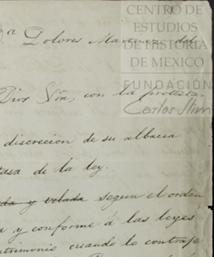 CENTRO DE
ESTUDIOS
DE HISTORIA
DE MÉXICO
FUNDACIÓN
Carlos Slim
ª Dolores
Dios Vía, con la protesta
discreción de su albacea
tasa de la ley.
da y velada segun el orden
a y conforme á las leyes
atrimonio cuando lo contraje